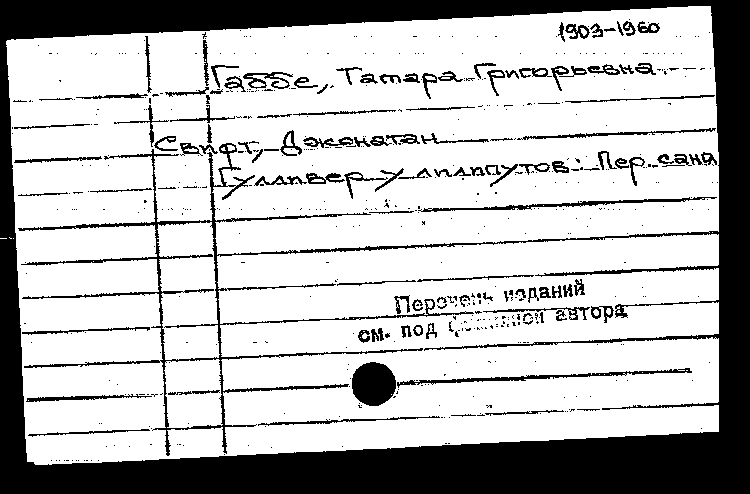 1903-1960
Габбе, Тамара Григорьевна.
Свифт, Джонатан
Гулливер у лилипутов: Пер. с анг
Перечень изданий
см. под фамилией автора